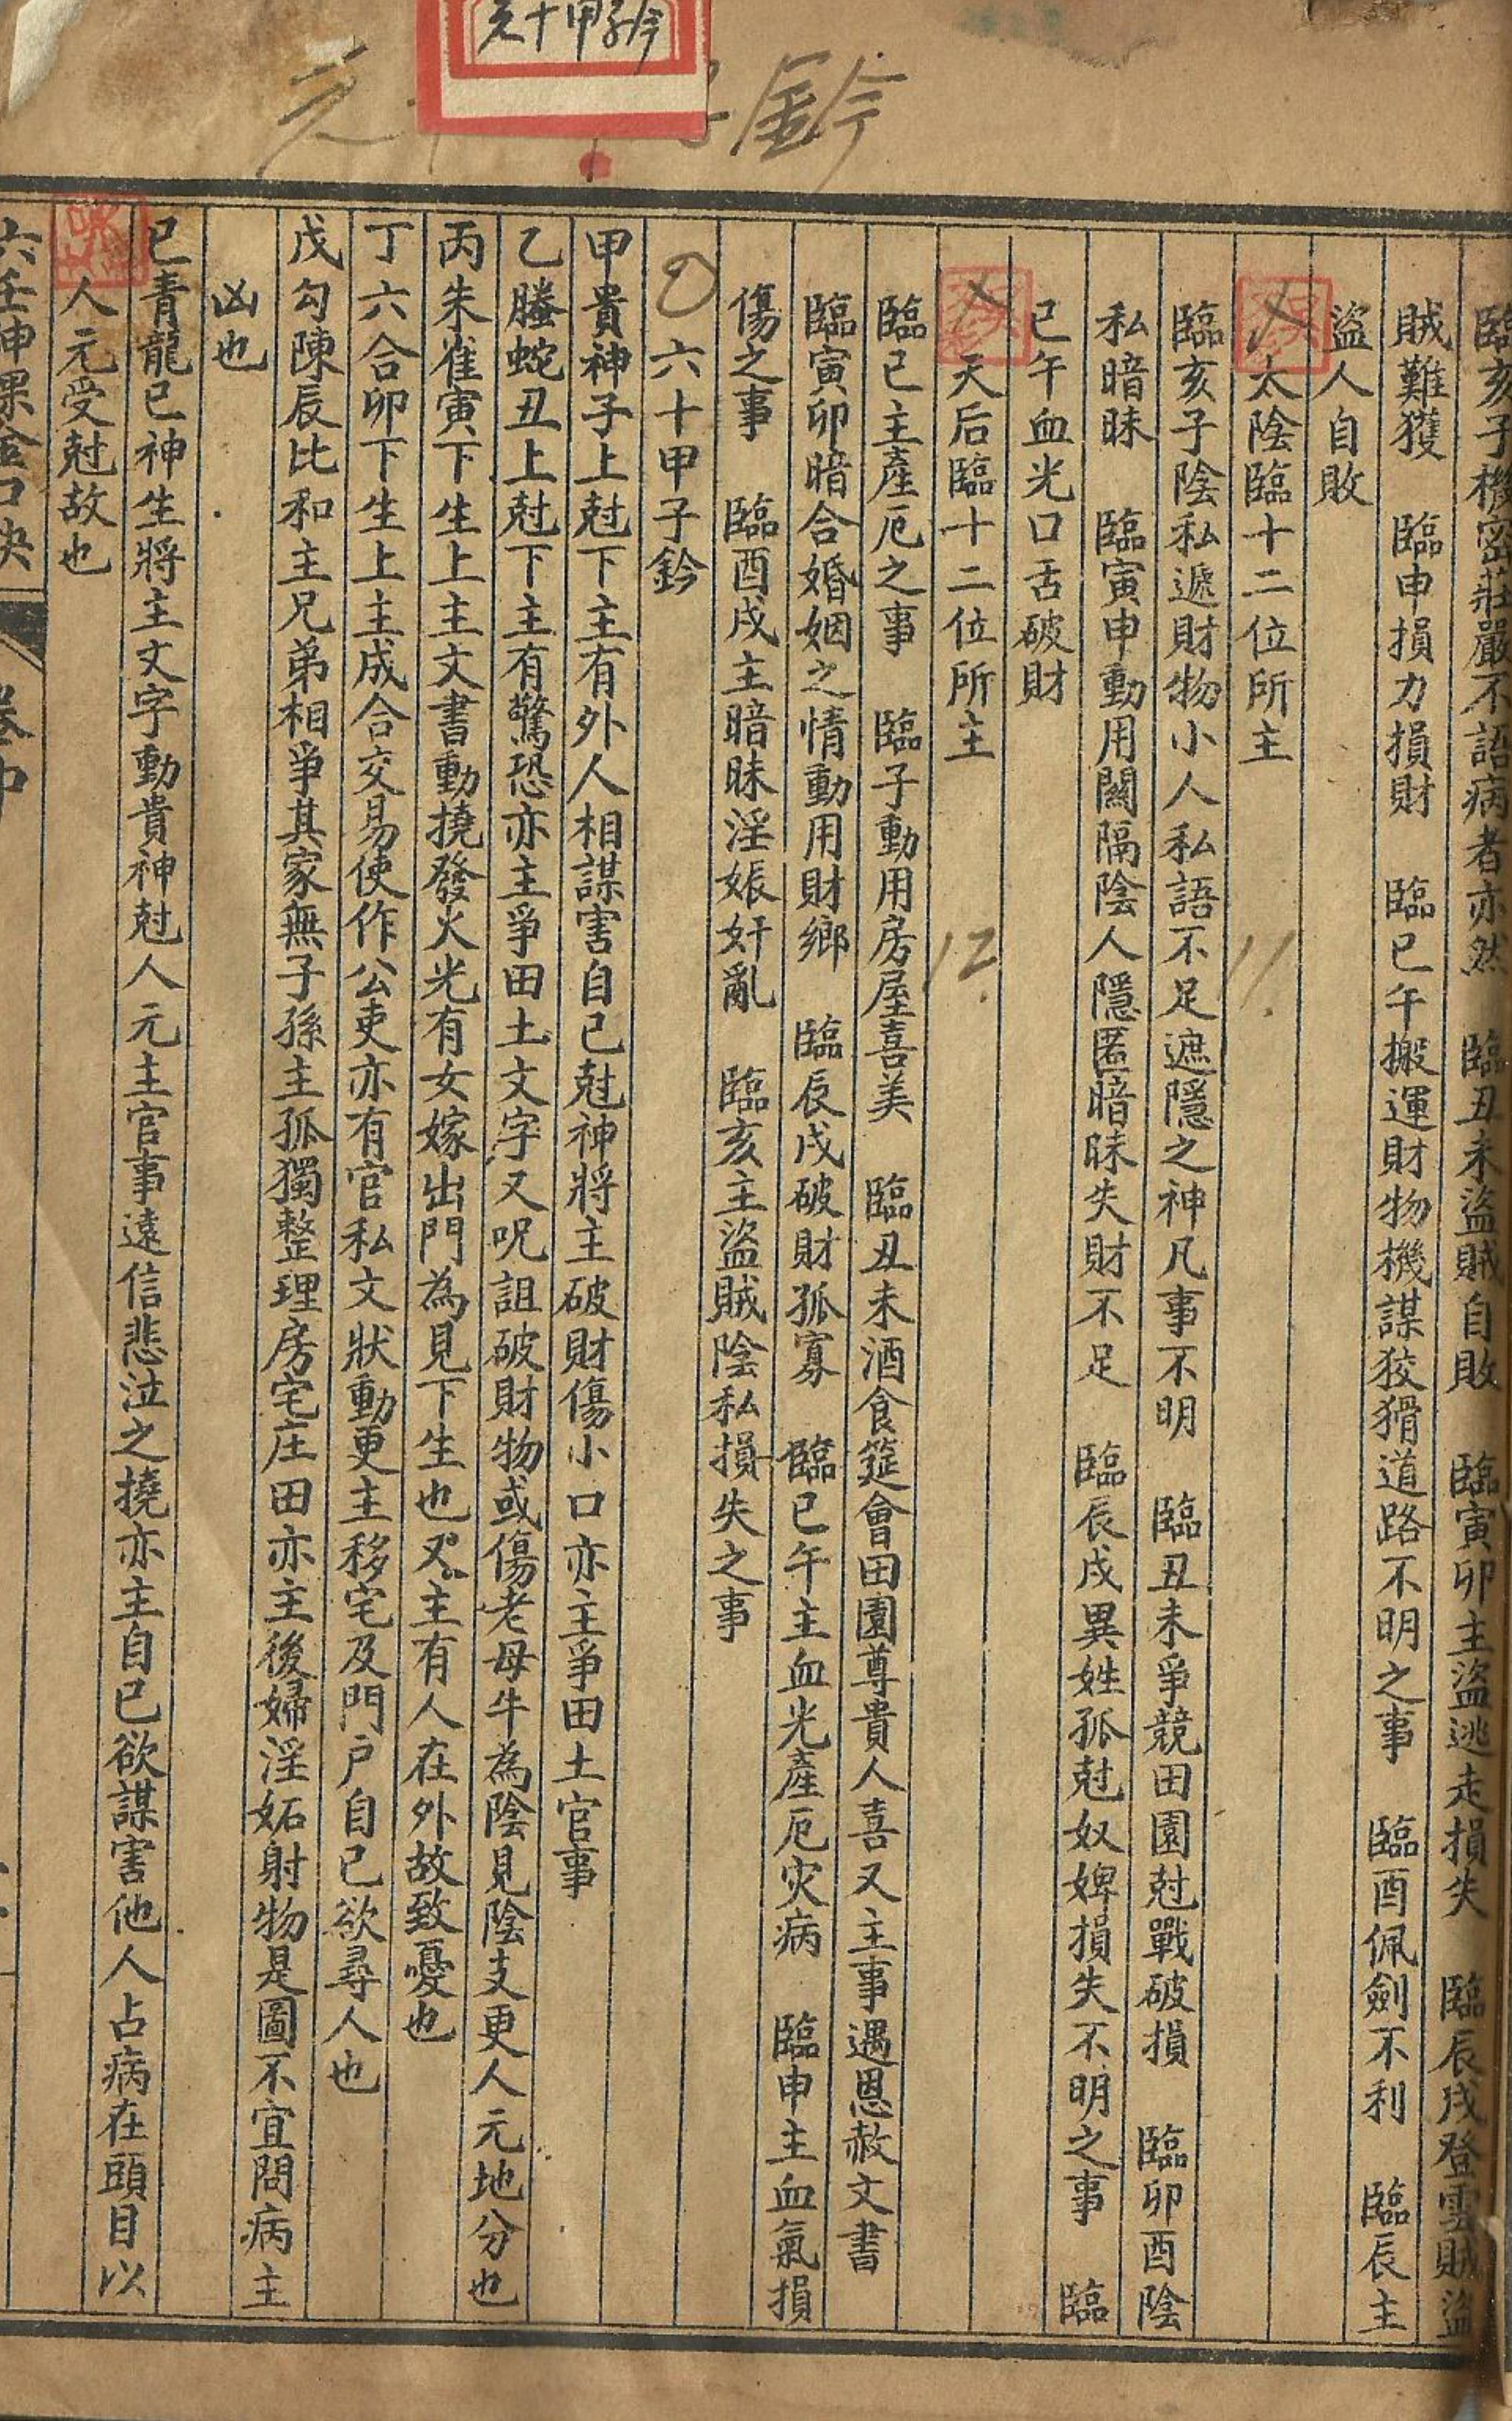 元十甲子鈐
元 鈐
臨亥子機密莊嚴不語病者亦然　臨丑未盜賊自敗　臨寅卯主盜逃走損失　臨辰戌登雲賊盜
賊難獲　臨申損力損財　臨巳午搬運財物機謀狡猾道路不明之事　臨酉佩劍不利　臨辰主
盜人自敗
太陰臨十二位所主
11.
臨亥子陰私遞財物小人私語不足遮隱之神凡事不明　臨丑未爭競田園尅戰破損　臨卯酉陰
私暗昧　臨寅申動用關隔陰人隱匿暗昧失財不足　臨辰戌異姓孤尅奴婢損失不明之事　臨
巳午血光口舌破財
天后臨十二位所主
12.
臨巳主產厄之事　臨子動用房屋喜美　臨丑未酒食筵會田園尊貴人喜又主事遇恩赦文書
臨寅卯暗合婚姻之情動用財鄉　臨辰戌破財孤寡　臨巳午主血光產厄灾病　臨申主血氣損
傷之事　臨酉戌主暗昧淫娠奸亂　臨亥主盜賊陰私損失之事
六十甲子鈐
甲貴神子上尅下主有外人相謀害自己尅神將主破財傷小口亦主爭田土官事
乙螣蛇丑上尅下主有驚恐亦主爭田土文字又呪詛破財物或傷老母牛為陰見陰支更人元地分也
丙朱雀寅下生上主文書動撓發火光有女嫁出門為見下生也又主有人在外故致憂也
丁六合卯下生上主成合交易使作公吏亦有官私文狀動更主移宅及門户自己欲尋人也
戊勾陳辰比和主兄弟相爭其家無子孫主孤獨整理房宅庄田亦主後婦淫妬射物是圖不宜問病主
凶也
己青龍巳神生將主文字動貴神尅人元主官事遠信悲泣之撓亦主自己欲謀害他人占病在頭目以
人元受尅故也
六壬神課金口訣
卷中